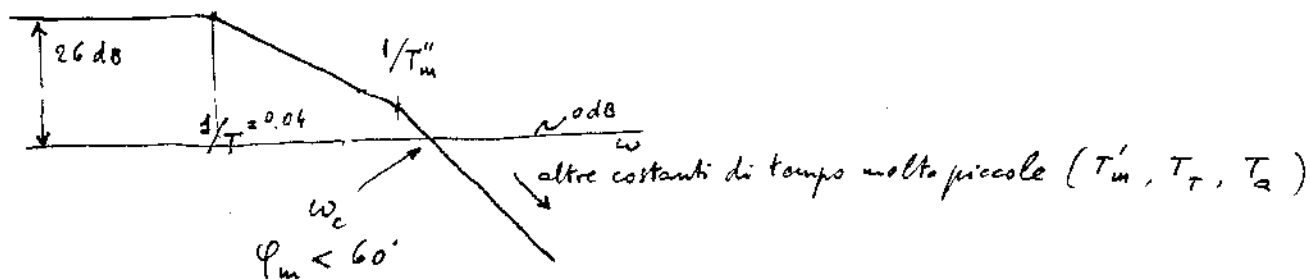 26 dB
1/T = 0.04
1/T''m
~ 0 dB
ω
altre costanti di tempo molto piccole ( T'm , T_T , T_a )
ω_c
φ_m < 60°